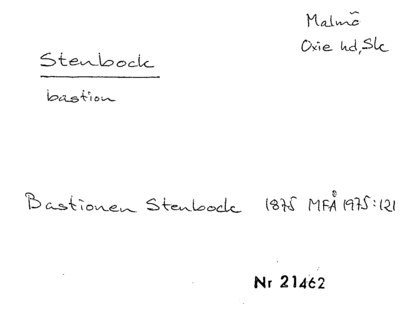 Malmö
Oxie hd, Sk
Stenbock
bastion
Bastionen Stenbock 1875 MFÅ 1975:121
Nr 21462